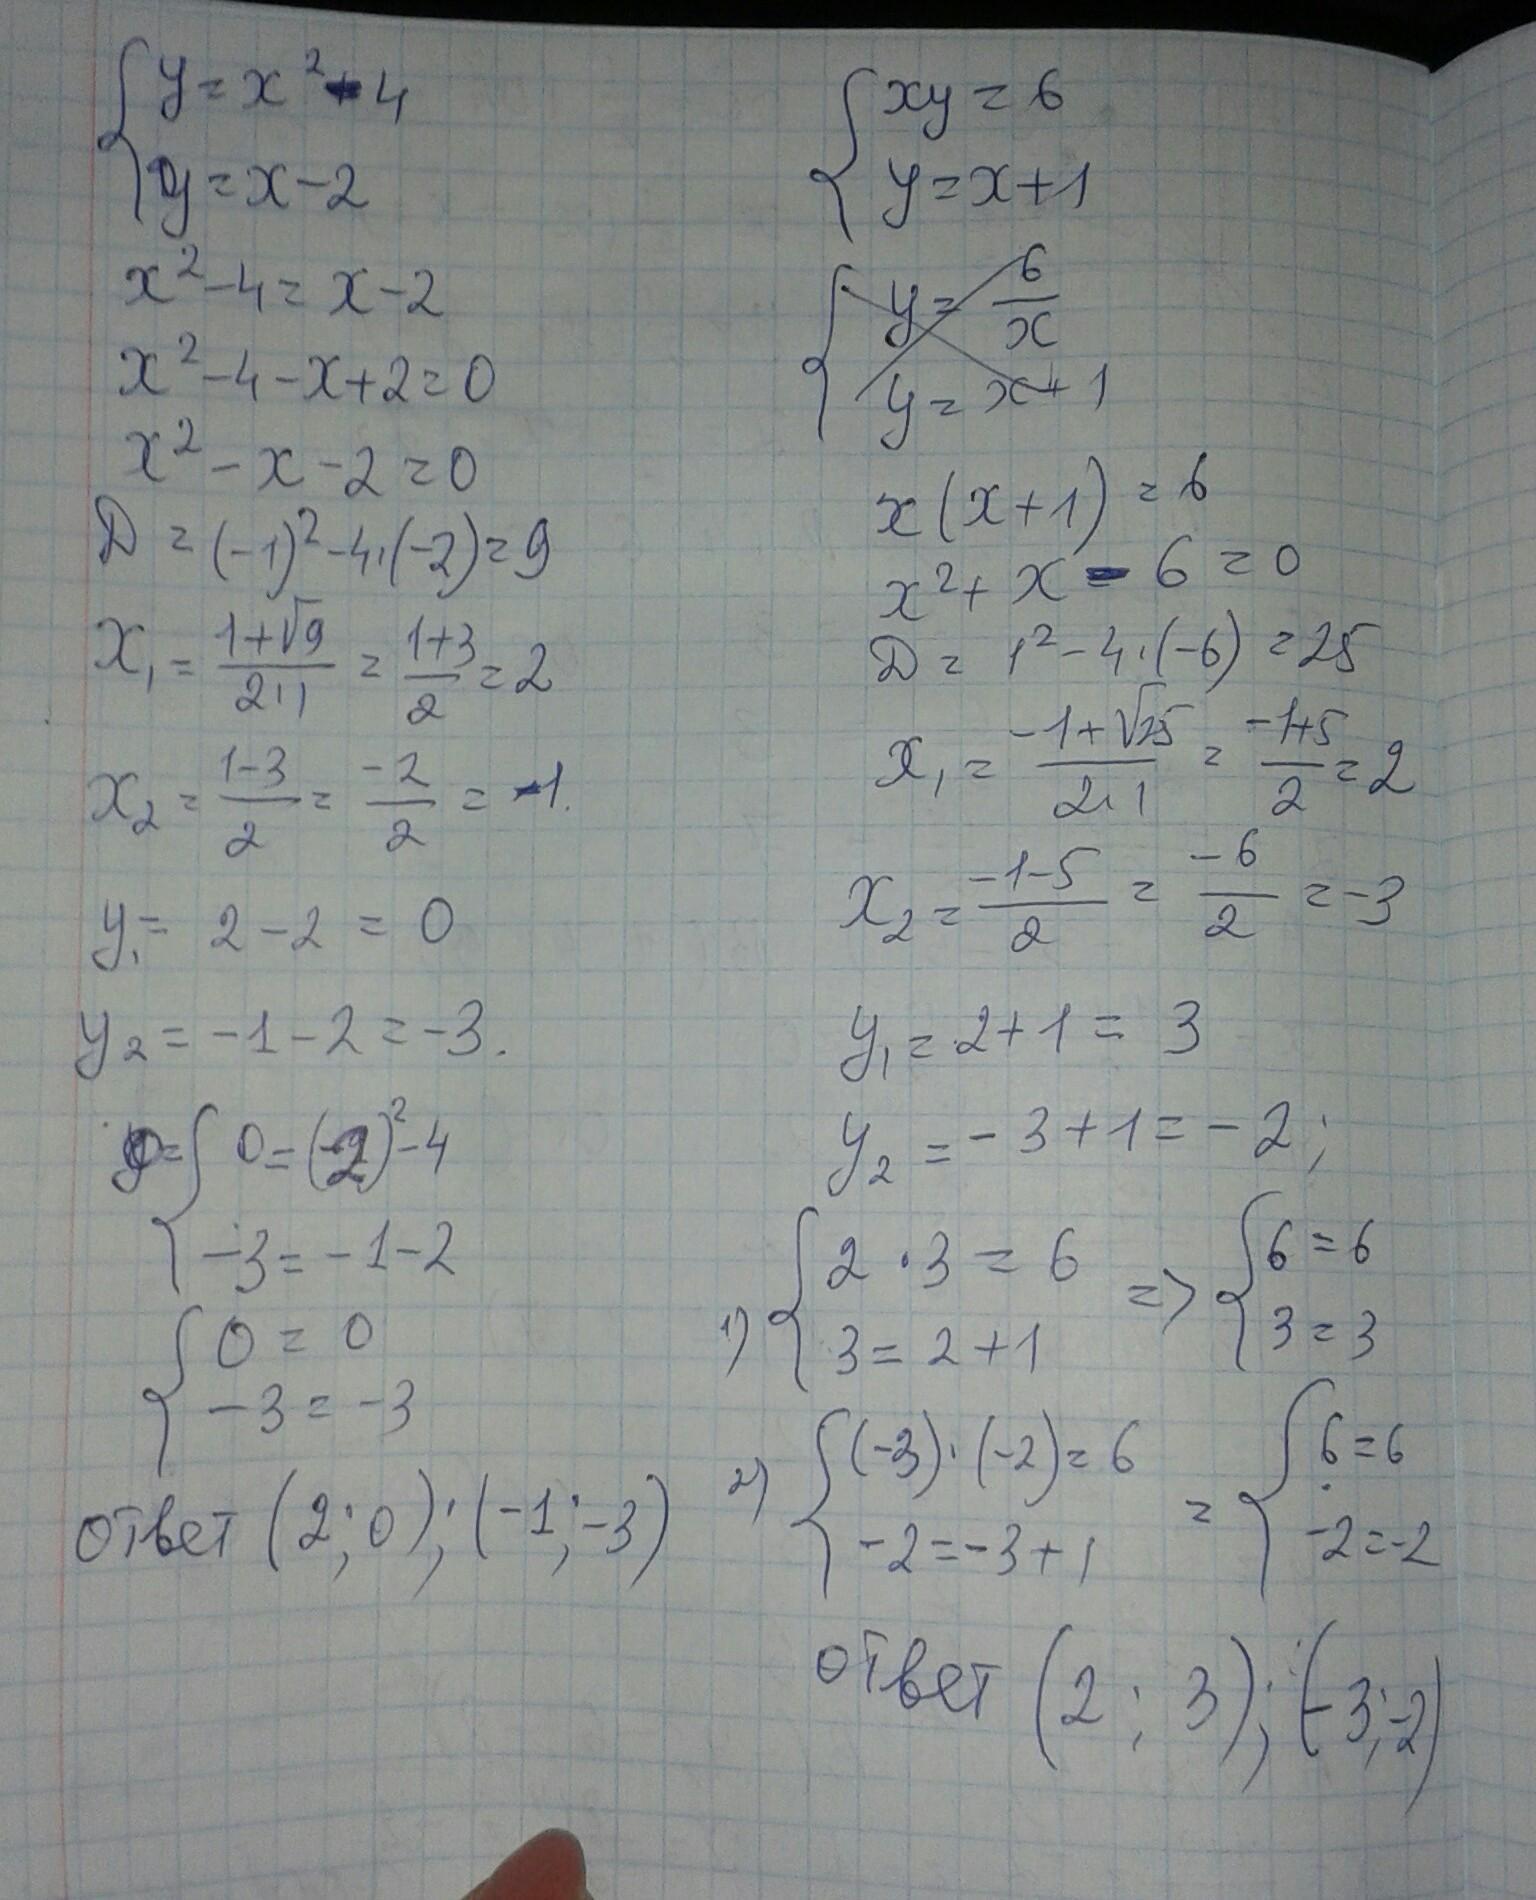 { y = x² - 4
y = x - 2
x² - 4 = x - 2
x² - 4 - x + 2 = 0
x² - x - 2 = 0
D = (-1)² - 4·(-2) = 9
x₁ = (1+√9)/(2·1) = (1+3)/2 = 2
x₂ = (1-3)/2 = -2/2 = -1.
y₁ = 2 - 2 = 0
y₂ = -1 - 2 = -3.
{ 0 = (-2)² - 4
-3 = -1 - 2
{ 0 = 0
-3 = -3
ответ (2; 0); (-1; -3)
{ xy = 6
y = x + 1
{ y = 6/x
y = x + 1
x(x+1) = 6
x² + x - 6 = 0
D = 1² - 4·(-6) = 25
x₁ = (-1+√25)/(2·1) = (-1+5)/2 = 2
x₂ = (-1-5)/2 = -6/2 = -3
y₁ = 2 + 1 = 3
y₂ = -3 + 1 = -2;
1) { 2 · 3 = 6 => { 6 = 6
3 = 2 + 1 3 = 3
2) { (-3)·(-2) = 6 = { 6 = 6
-2 = -3 + 1 -2 = -2
ответ (2; 3); (-3; -2)